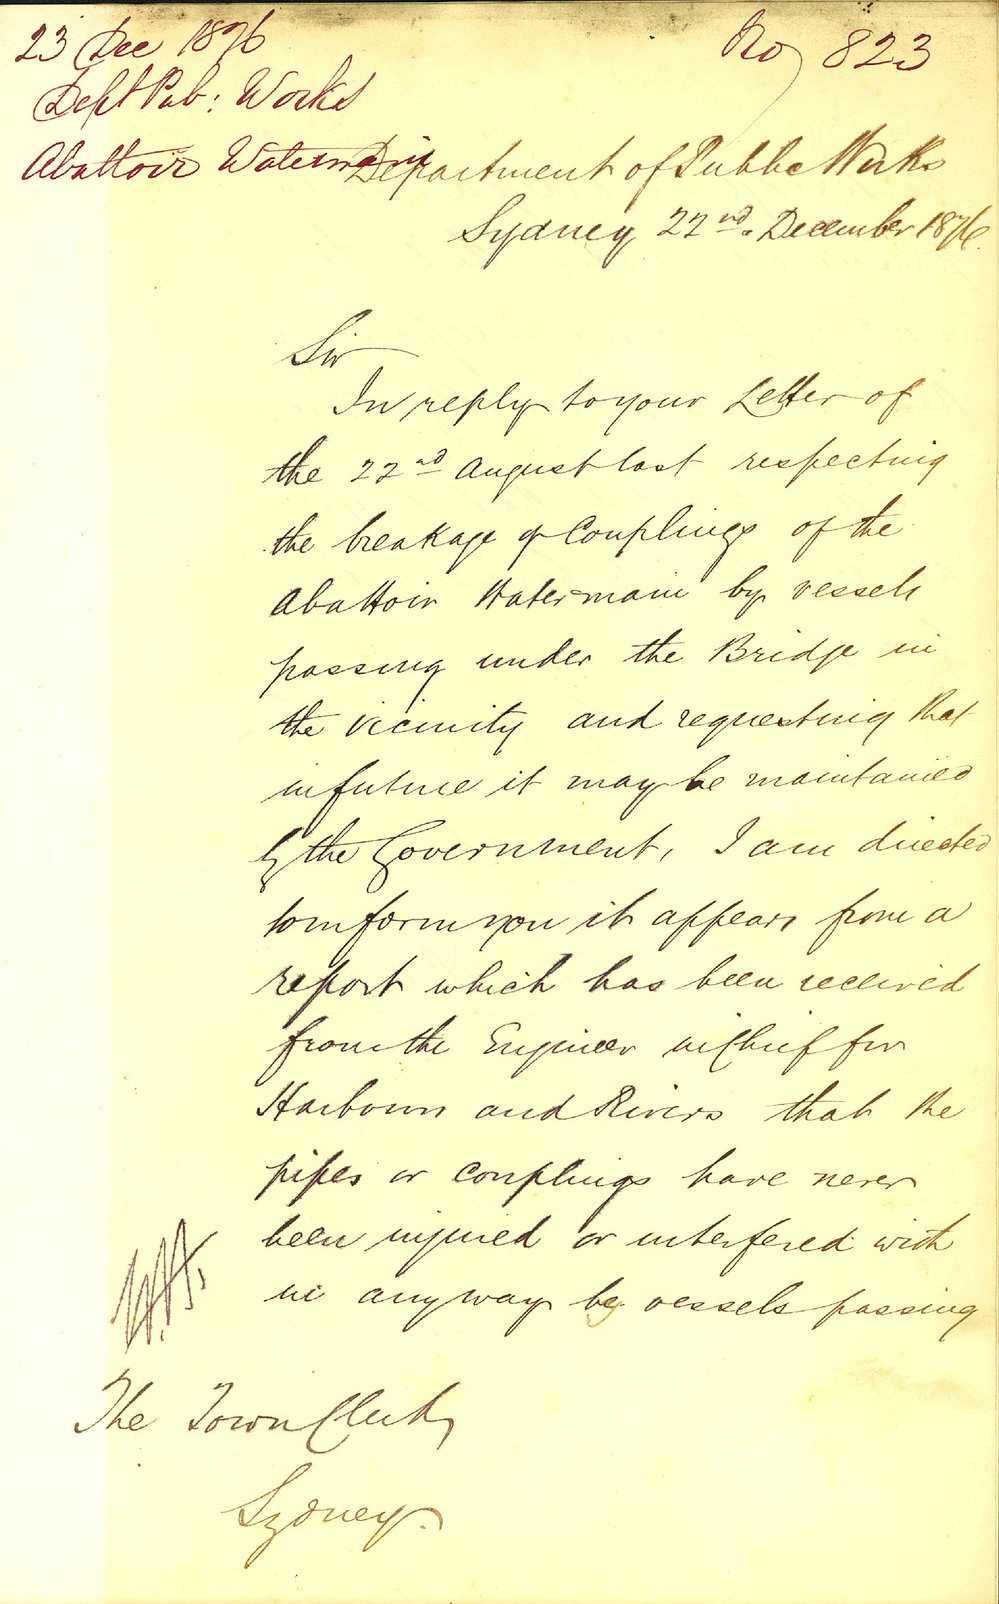 23 Dec 1876
No 823
Dept Pub: Works
Abattoir Watermain
Department of Public Works
Sydney 22nd. December 1876.
Sir
In reply to your Letter of
the 22nd August last respecting
the breakage of Couplings of the
Abattoir Watermain by vessels
passing under the Bridge in
the vicinity and requesting that
in future it may be maintained
by the Government, I am directed
to inform you it appears from a
report which has been received
from the Engineer in Chief for
Harbours and Rivers that the
pipes or couplings have never
been injured or interfered with
in anyway by vessels passing
The Town Clerk,
Sydney.